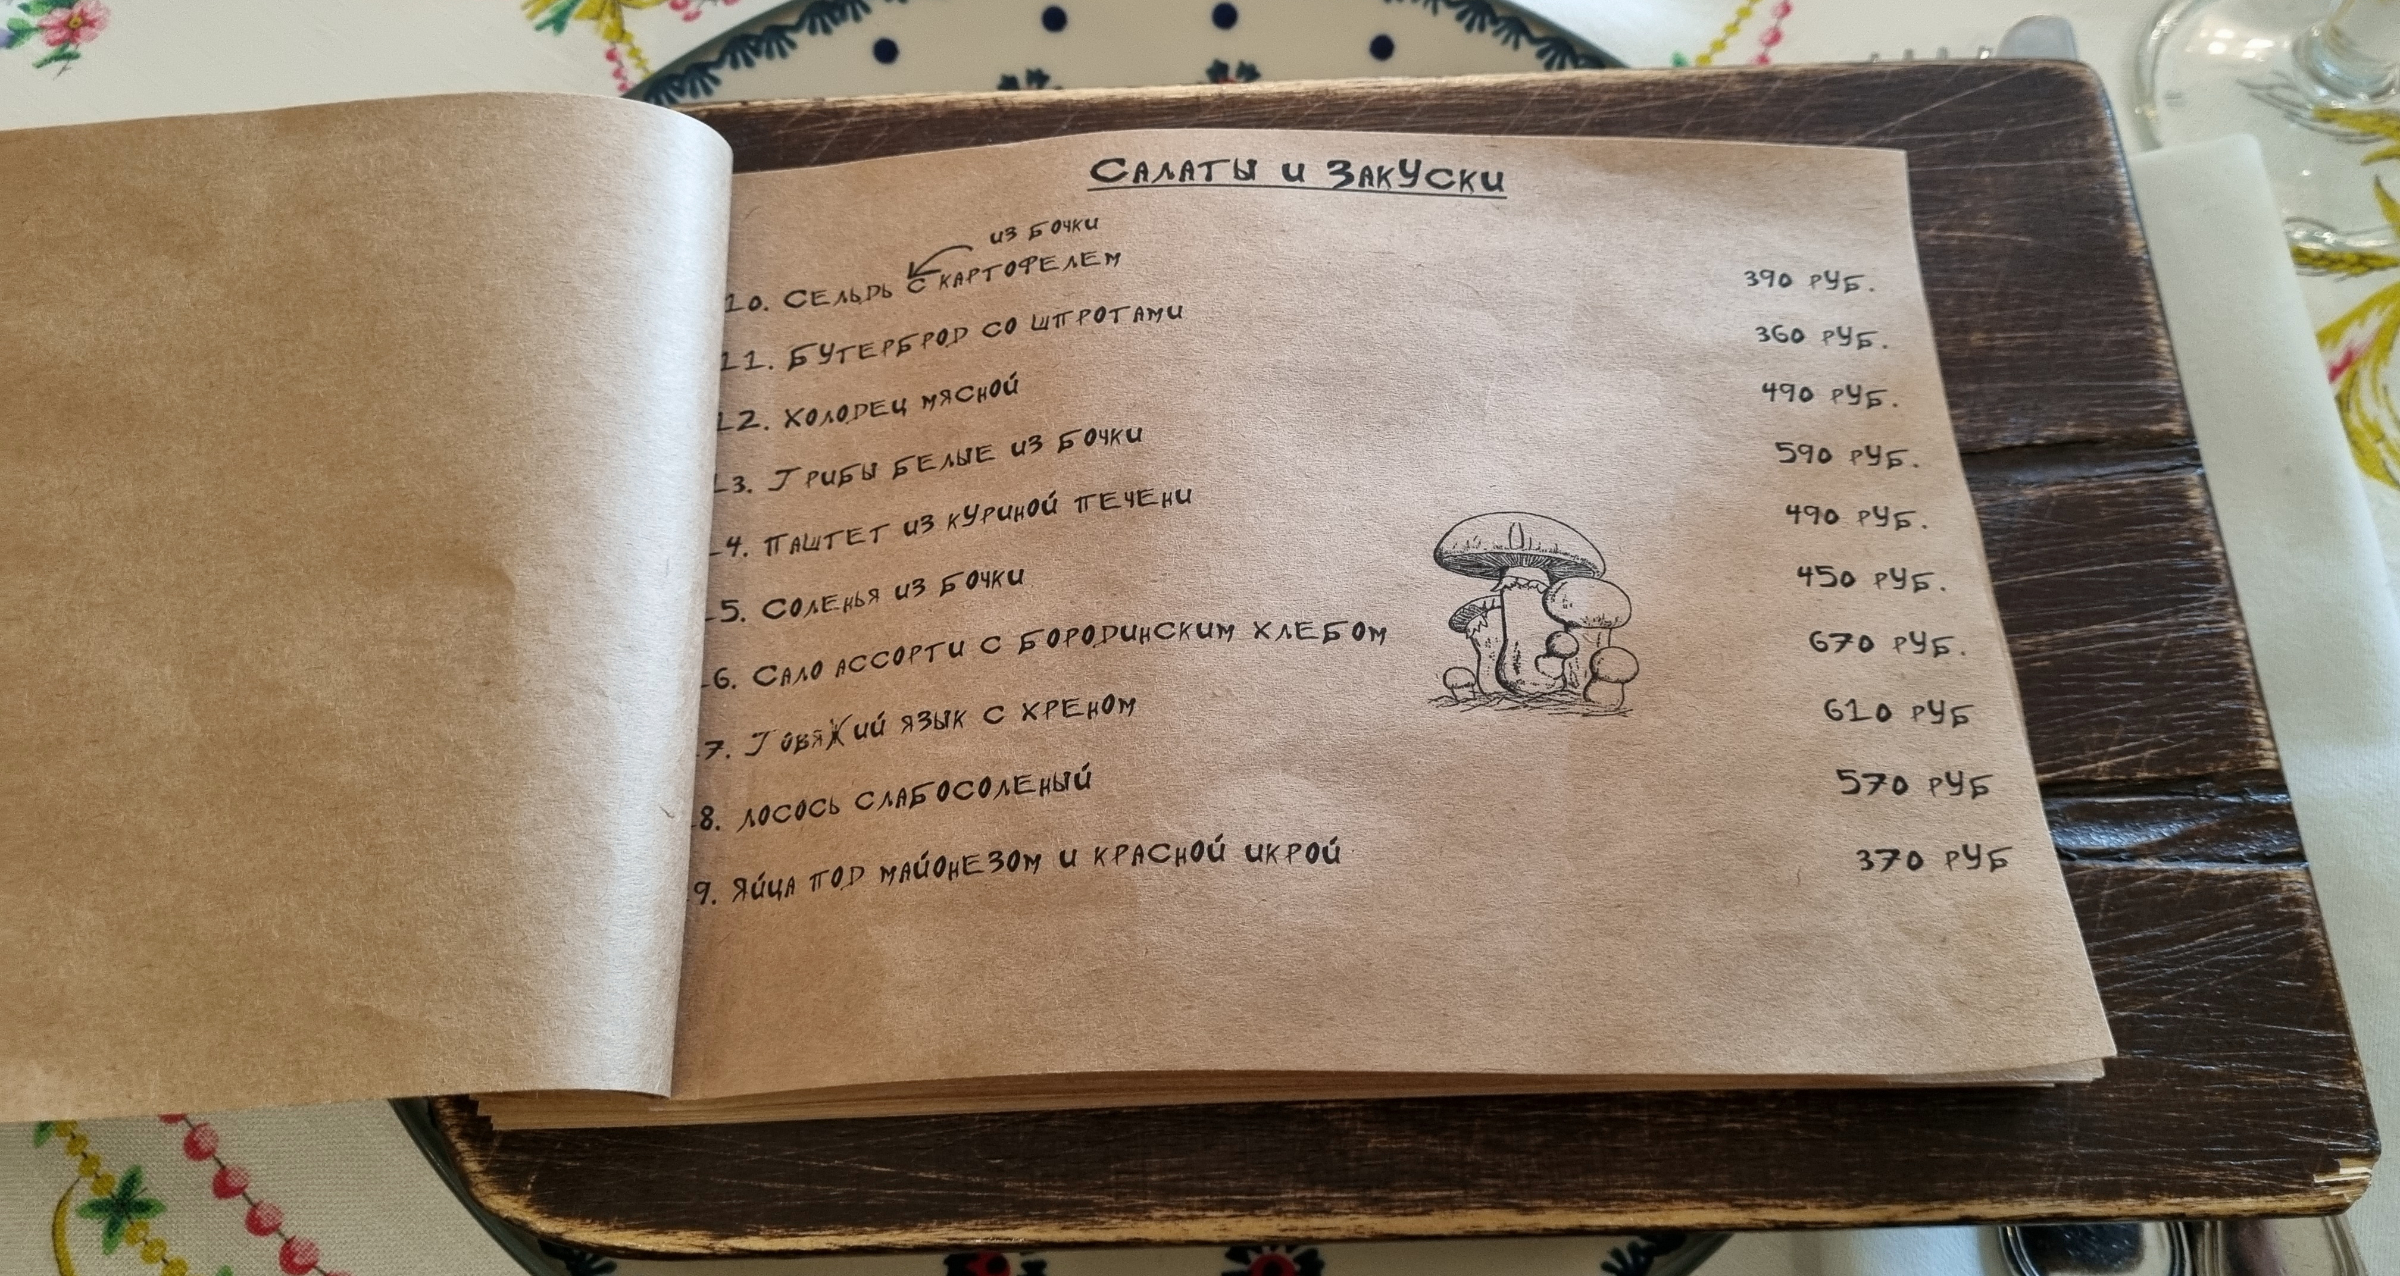 Салаты и Закуски
из бочки
10. Сельдь с картофелем 390 руб.
11. Бутерброд со шпротами 360 руб.
12. Холодец мясной 490 руб.
13. Грибы белые из бочки 590 руб.
14. Паштет из куриной печени 490 руб.
15. Соленья из бочки 450 руб.
16. Сало ассорти с бородинским хлебом 670 руб.
17. Говяжий язык с хреном 610 руб
18. лосось слабосоленый 570 руб
19. Яйца под майонезом и красной икрой 370 руб